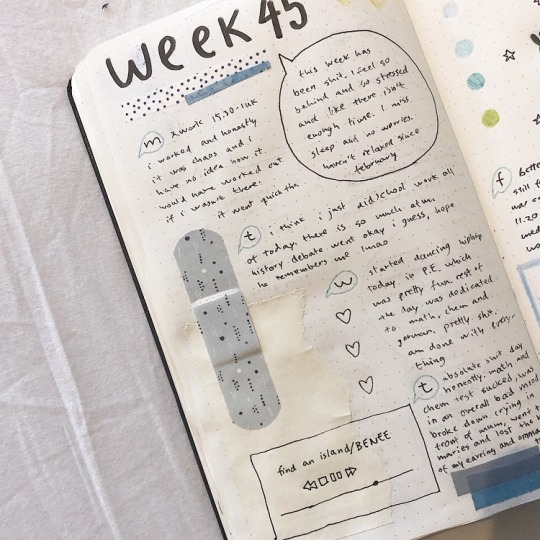 week 45
this week has
been shit. i feel so
behind and so stressed
and like there isn't
enough time. i miss
sleep and no worries.
haven't relaxed since
february
m
work 15.30-luk
i worked and honestly
it was chaos and i
have no idea how it
would have worked out
if i wasn't there.
it went quick tho
t
i think i just did school work all
of today, there is so much atm.
history debate went okay i guess, hope
he remembers me lmao
w
started dancing
today in P.E. which
was pretty fun. rest of
the day was dedicated
to math, chem and
german. pretty shit.
am done with every-
thing
t
absolute shit day
honestly. math and
chem test sucked, was
in an overall bad mood
broke down crying in
front of mum, went t
maries and lost the
of my earring and
find an island/BENEE
f
still
11.20